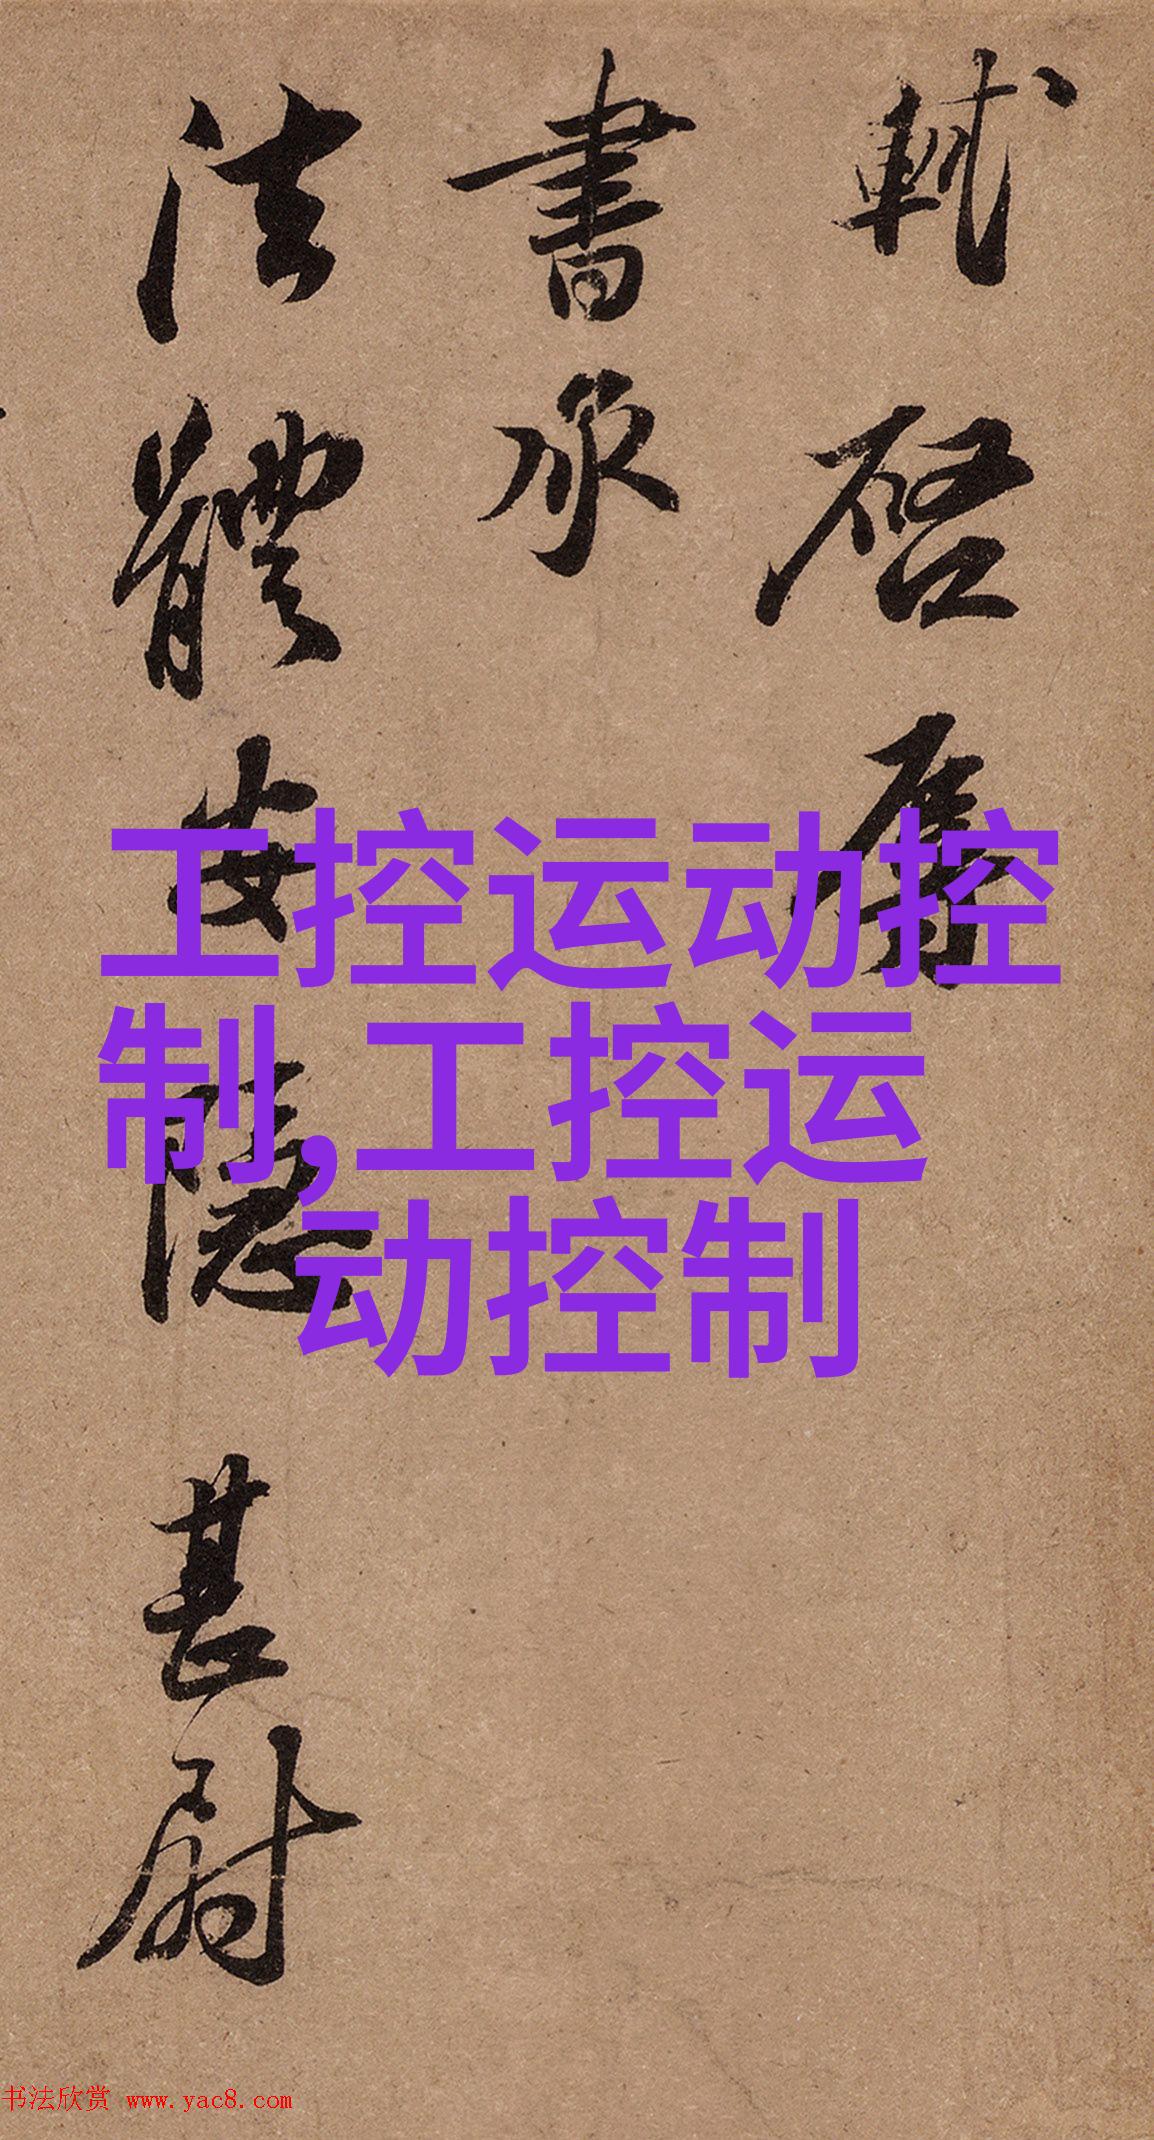 軾啓辱
書承
法體安隱甚慰
工控运动控
制,工控运
动控制
书法欣赏 www.yac8.com